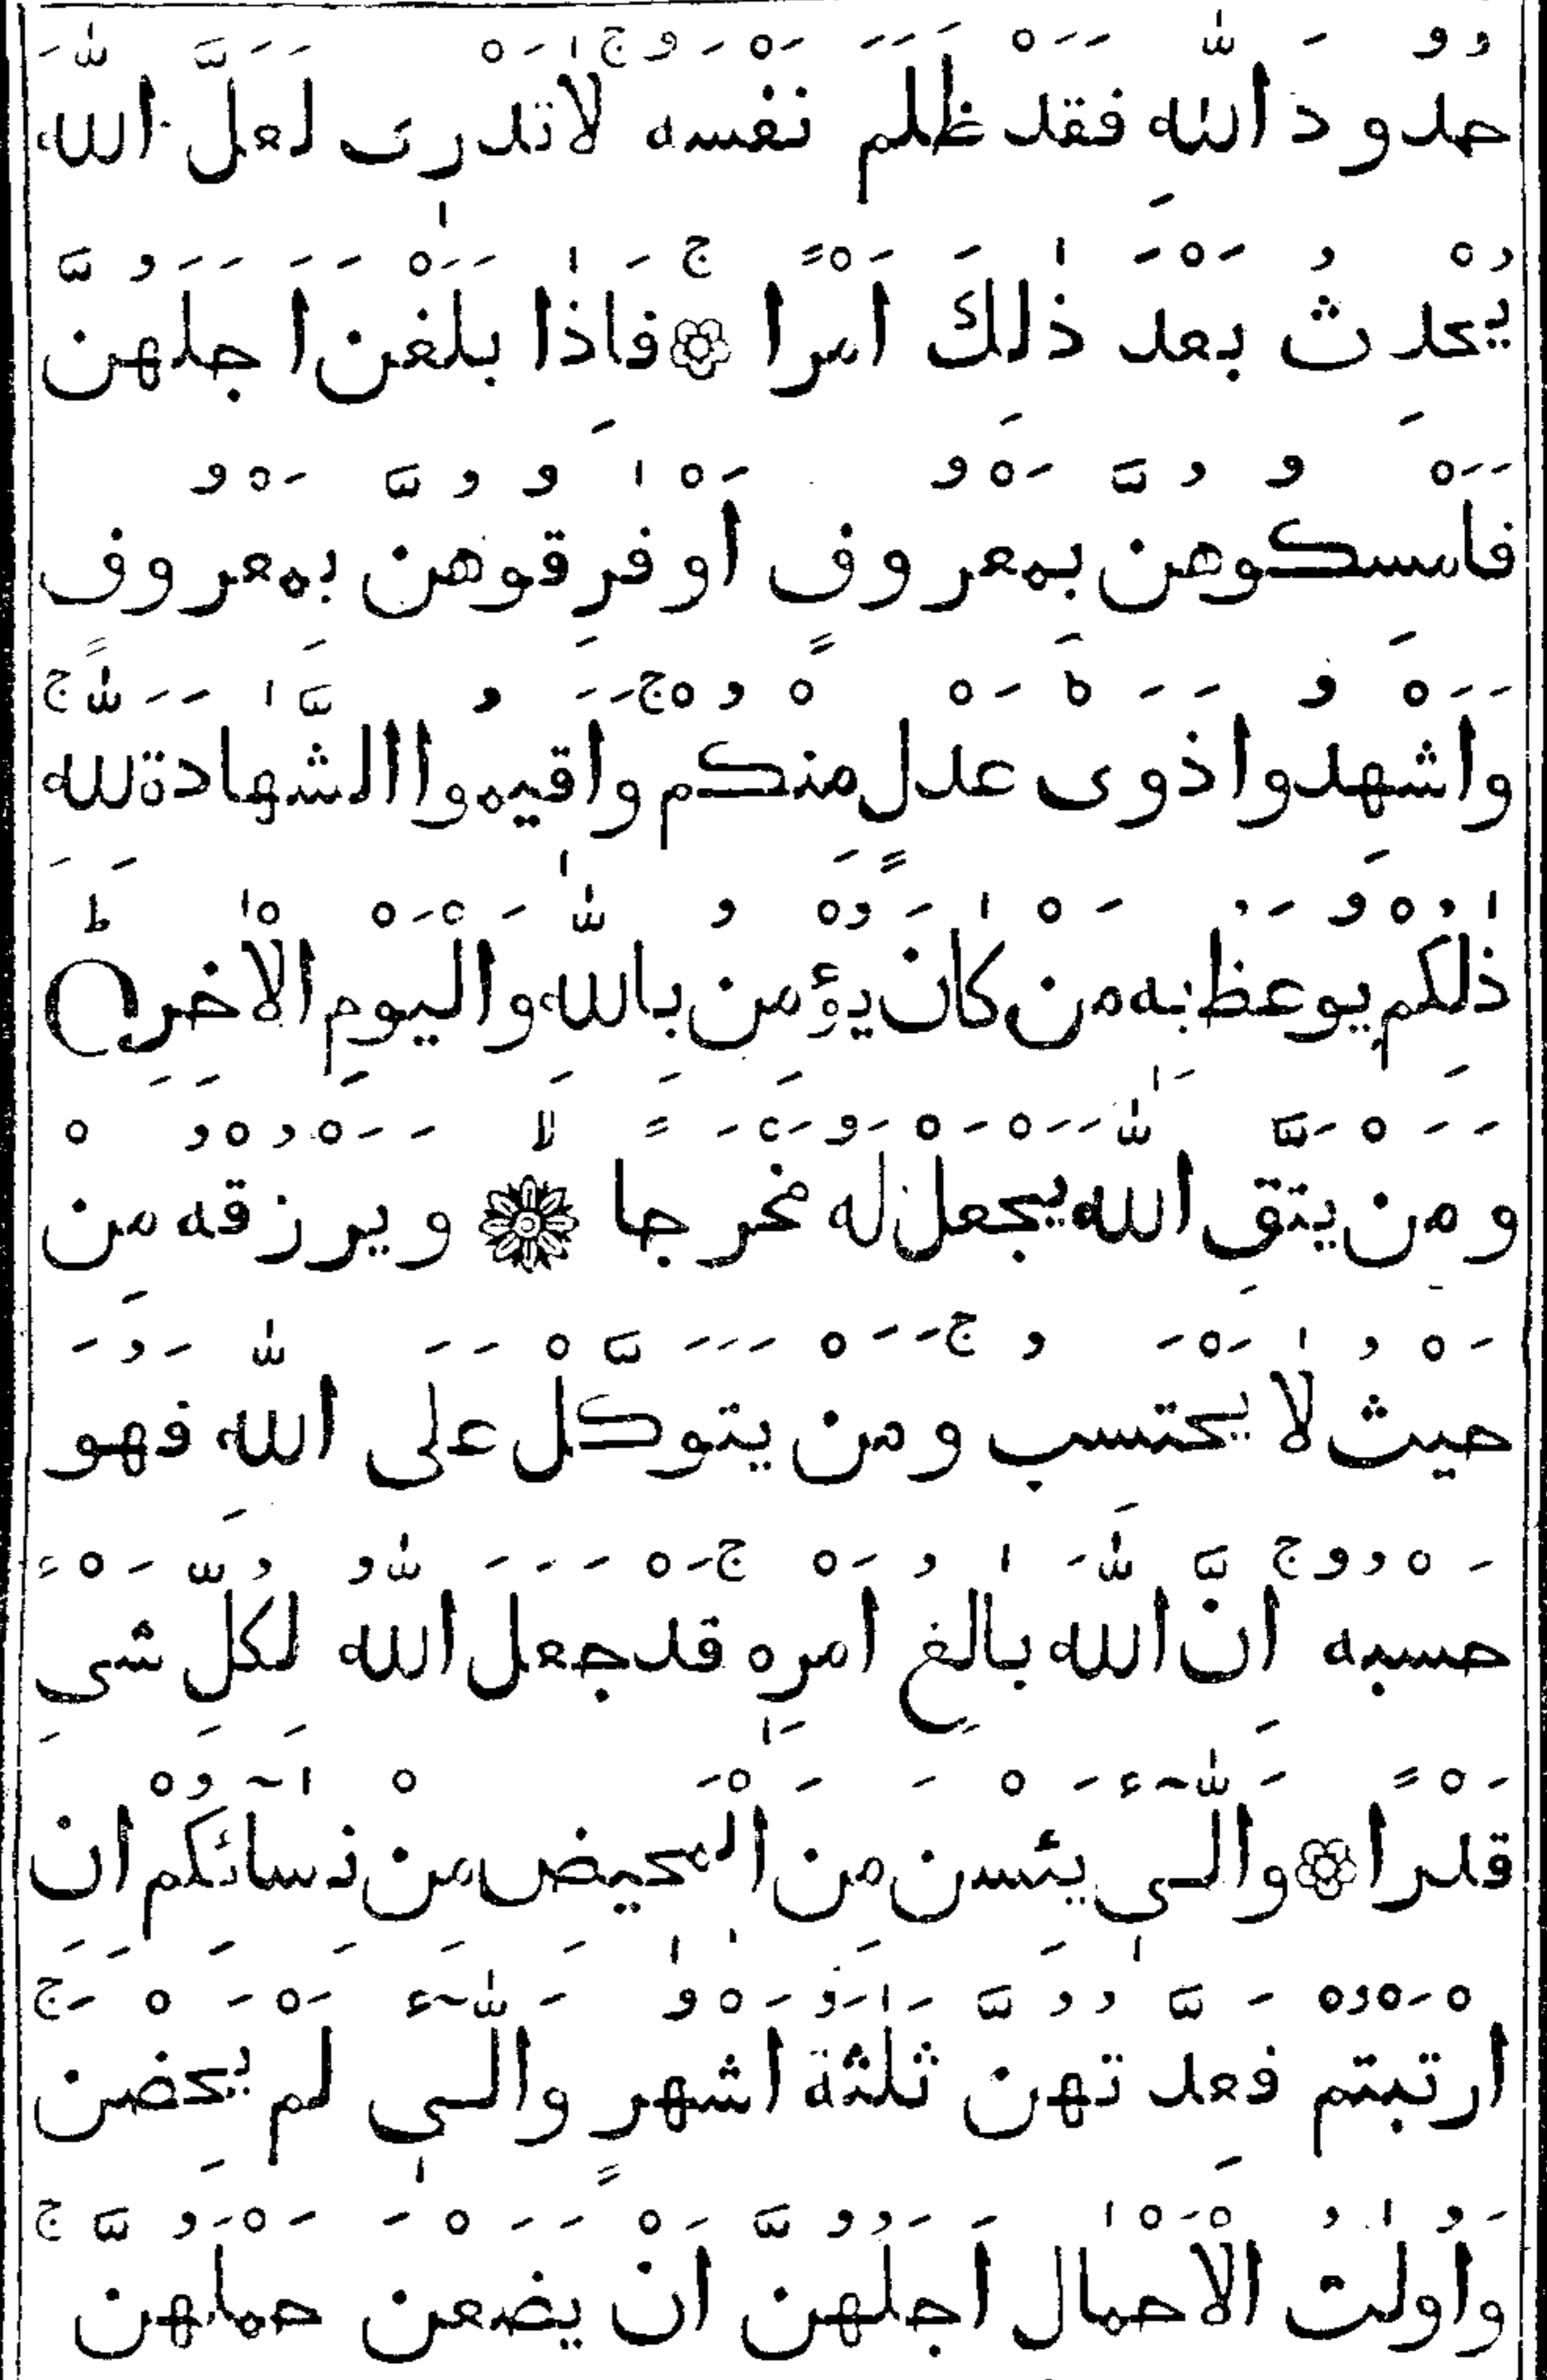 حُدُودَ اللّٰهِ فَقَدْ ظَلَمَ نَفْسَهٗ ج لَا تَدْرِیْ لَعَلَّ اللّٰهَ
یُحْدِثُ بَعْدَ ذٰلِكَ اَمْرًا ۝ فَاِذَا بَلَغْنَ اَجَلَهُنَّ
فَاَمْسِكُوْهُنَّ بِمَعْرُوْفٍ اَوْ فَرِقُوْهُنَّ بِمَعْرُوْفٍ
وَاَشْهِدُوْا ذَوَیْ عَدْلٍ مِنْكُمْ وَاَقِیْمُوا الشَّهَادَةَ لِلّٰهِ ج
ذٰلِكُمْ یُوْعَظُ بِهٖ مَنْ كَانَ یُؤْمِنُ بِاللّٰهِ وَالْیَوْمِ الْاٰخِرِ ط
وَمَنْ یَتَّقِ اللّٰهَ یَجْعَلْ لَهٗ مَخْرَجًا ۝ لا وَیَرْزُقْهُ مِنْ
حَیْثُ لَا یَحْتَسِبُ ج وَمَنْ یَتَوَكَّلْ عَلَی اللّٰهِ فَهُوَ
حَسْبُهٗ ج اِنَّ اللّٰهَ بَالِغُ اَمْرِهٖ ج قَدْ جَعَلَ اللّٰهُ لِكُلِّ شَیْءٍ
قَدْرًا ۝ وَالّٰٓیِٔ یَئِسْنَ مِنَ الْمَحِیْضِ مِنْ نِسَآئِكُمْ اِنِ
ارْتَبْتُمْ فَعِدَّتُهُنَّ ثَلٰثَةُ اَشْهُرٍ وَالّٰٓیِٔ لَمْ یَحِضْنَ ج
وَاُولٰتُ الْاَحْمَالِ اَجَلُهُنَّ اَنْ یَضَعْنَ حَمْلَهُنَّ ج